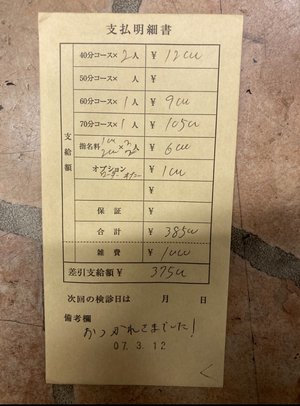 支払明細書
支給額
40分コース× 2人 ¥ 12000
50分コース× 人 ¥
60分コース× 1人 ¥ 9000
70分コース× 1人 ¥ 10500
指名料 1000 2000 ×2 2人 ¥ 6000
オプション ¥ 1000
¥
保証 ¥
合計 ¥ 38500
雑費 ¥ 1000
差引支給額 ¥ 37500
次回の検診日は 月 日
備考欄
おつかれさまでした!
07.3.12